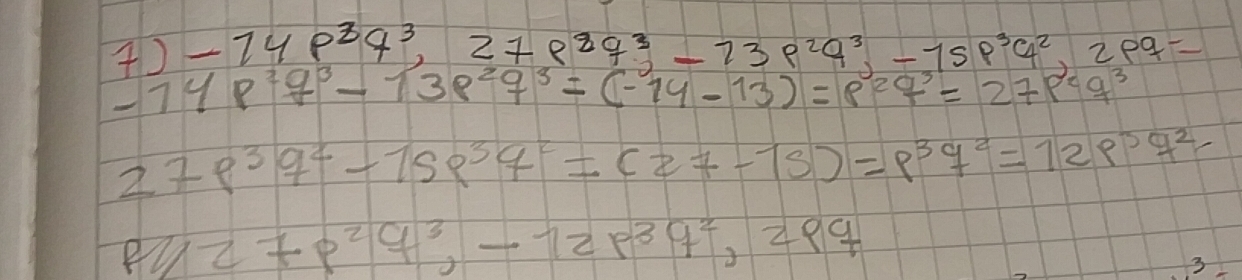 7) -14p²q³, 27p³q², -13p²q³, -15p³q², 2pq=
-14p²q³-13p²q³=(-14-13)=p²q³=27p²q³
27p³q²-15p³q²=(27-15)=p³q²=12p³q²-
27p²q³, -12p³q², 2pq